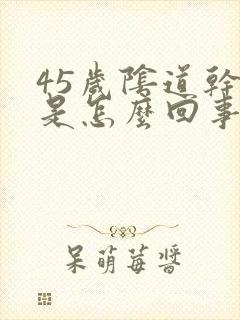 45歲陰道幹
是怎麼回事
呆萌莓醬